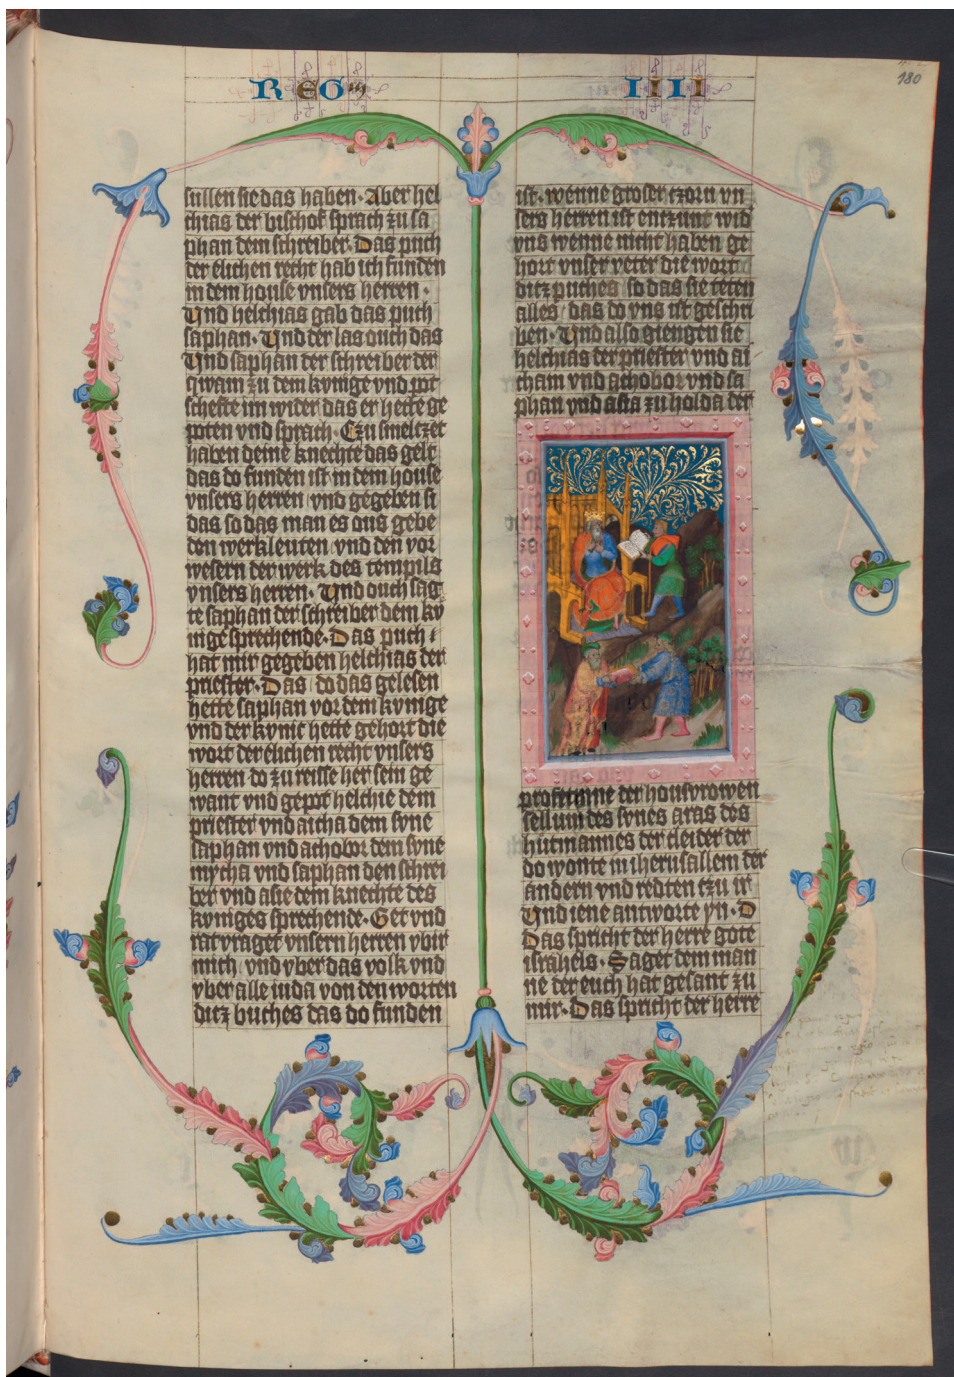 REG̅
IIII
180
sullen sie das haben. Aber hel
chias der bischof sprach zu sa
phan dem schreiber. Das puch
der elichen recht hab ich funden
in dem house vnsers herren.
Vnd helchias gab das puch
saphan. Vnd der las ouch das
Vnd saphan der schreiber der
qwam zu dem kvnige vnd pot
schefte im wider das er hette ge
poten vnd sprach. Czu smelczet
haben deine knechte das gelt
das do funden ist in dem house
vnsers herren vnd gegeben si
das so das man es ous gebe
den werkleuten vnd den vor
wesern der werk des tempils
vnsers herren. Vnd ouch sag
te saphan der schreiber dem kv
nige sprechende. Das puch
hat mir gegeben helchias der
priester. Das do das gelesen
hette saphan vor dem kvnige
vnd der kvnic hette gehort die
wort der elichen recht vnsers
herren do zu reisse her sein ge
want vnd gepot helchie dem
priester vnd aicha dem svne
saphan vnd achobor dem svne
mycha vnd saphan den schrei
ber vnd asie dem knechte des
kvniges sprechende. Get vnd
rat vraget vnsern herren vbir
mich vnd vber das volk vnd
vber alle iuda von den worten
dicz buches das do funden
ist. wenne groser czorn vn
sers herren ist entzunt wid
vns wenne nicht haben ge
hort vnser veter die wort
dicz puches so das sie teten
alles das do vns ist geschri
ben. Vnd also giengen sie
helchias der priester vnd ai
cham vnd achobor vnd sa
phan vnd asia zu holda der
profetinne der housvrowen
sellum des svnes aras des
hutmannes der cleider der
do wonte in iherusallem der
andern vnd redten czu ir
Vnd iene antworte yn. D
Das spricht der herre gote
israhels. Saget dem man
ne der euch hat gesant zu
mir. Das spricht der herre